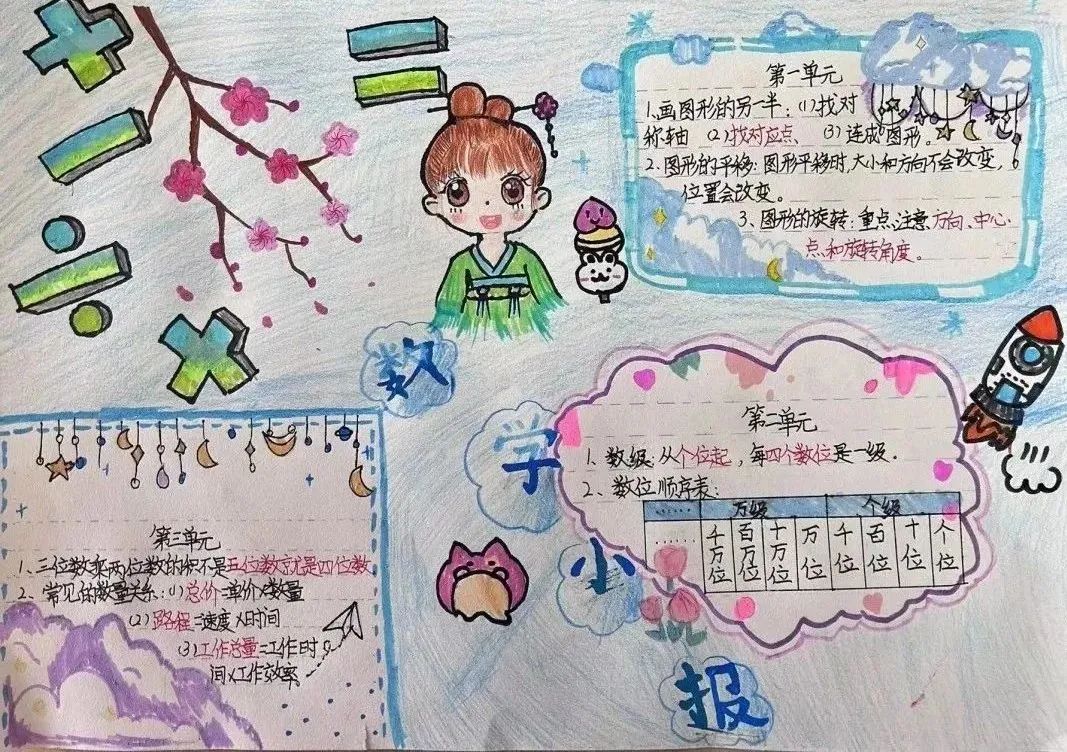 第一单元
1、画图形的另一半：(1)找对
称轴 (2)找对应点 (3)连成图形。
2、图形的平移：图形平移时，大小和方向不会改变，
位置会改变。
3、图形的旋转：重点、注意方向、中心
点和旋转角度。
数学小报
第二单元
1、数级：从个位起，每四个数位是一级．
2、数位顺序表：
…… 万级 个级
…… 千万位 百万位 十万位 万位 千位 百位 十位 个位
第三单元
1、三位数乘两位数的积不是五位数就是四位数
2、常见的数量关系：(1)总价=单价×数量
(2)路程=速度×时间
(3)工作总量=工作时
间×工作效率